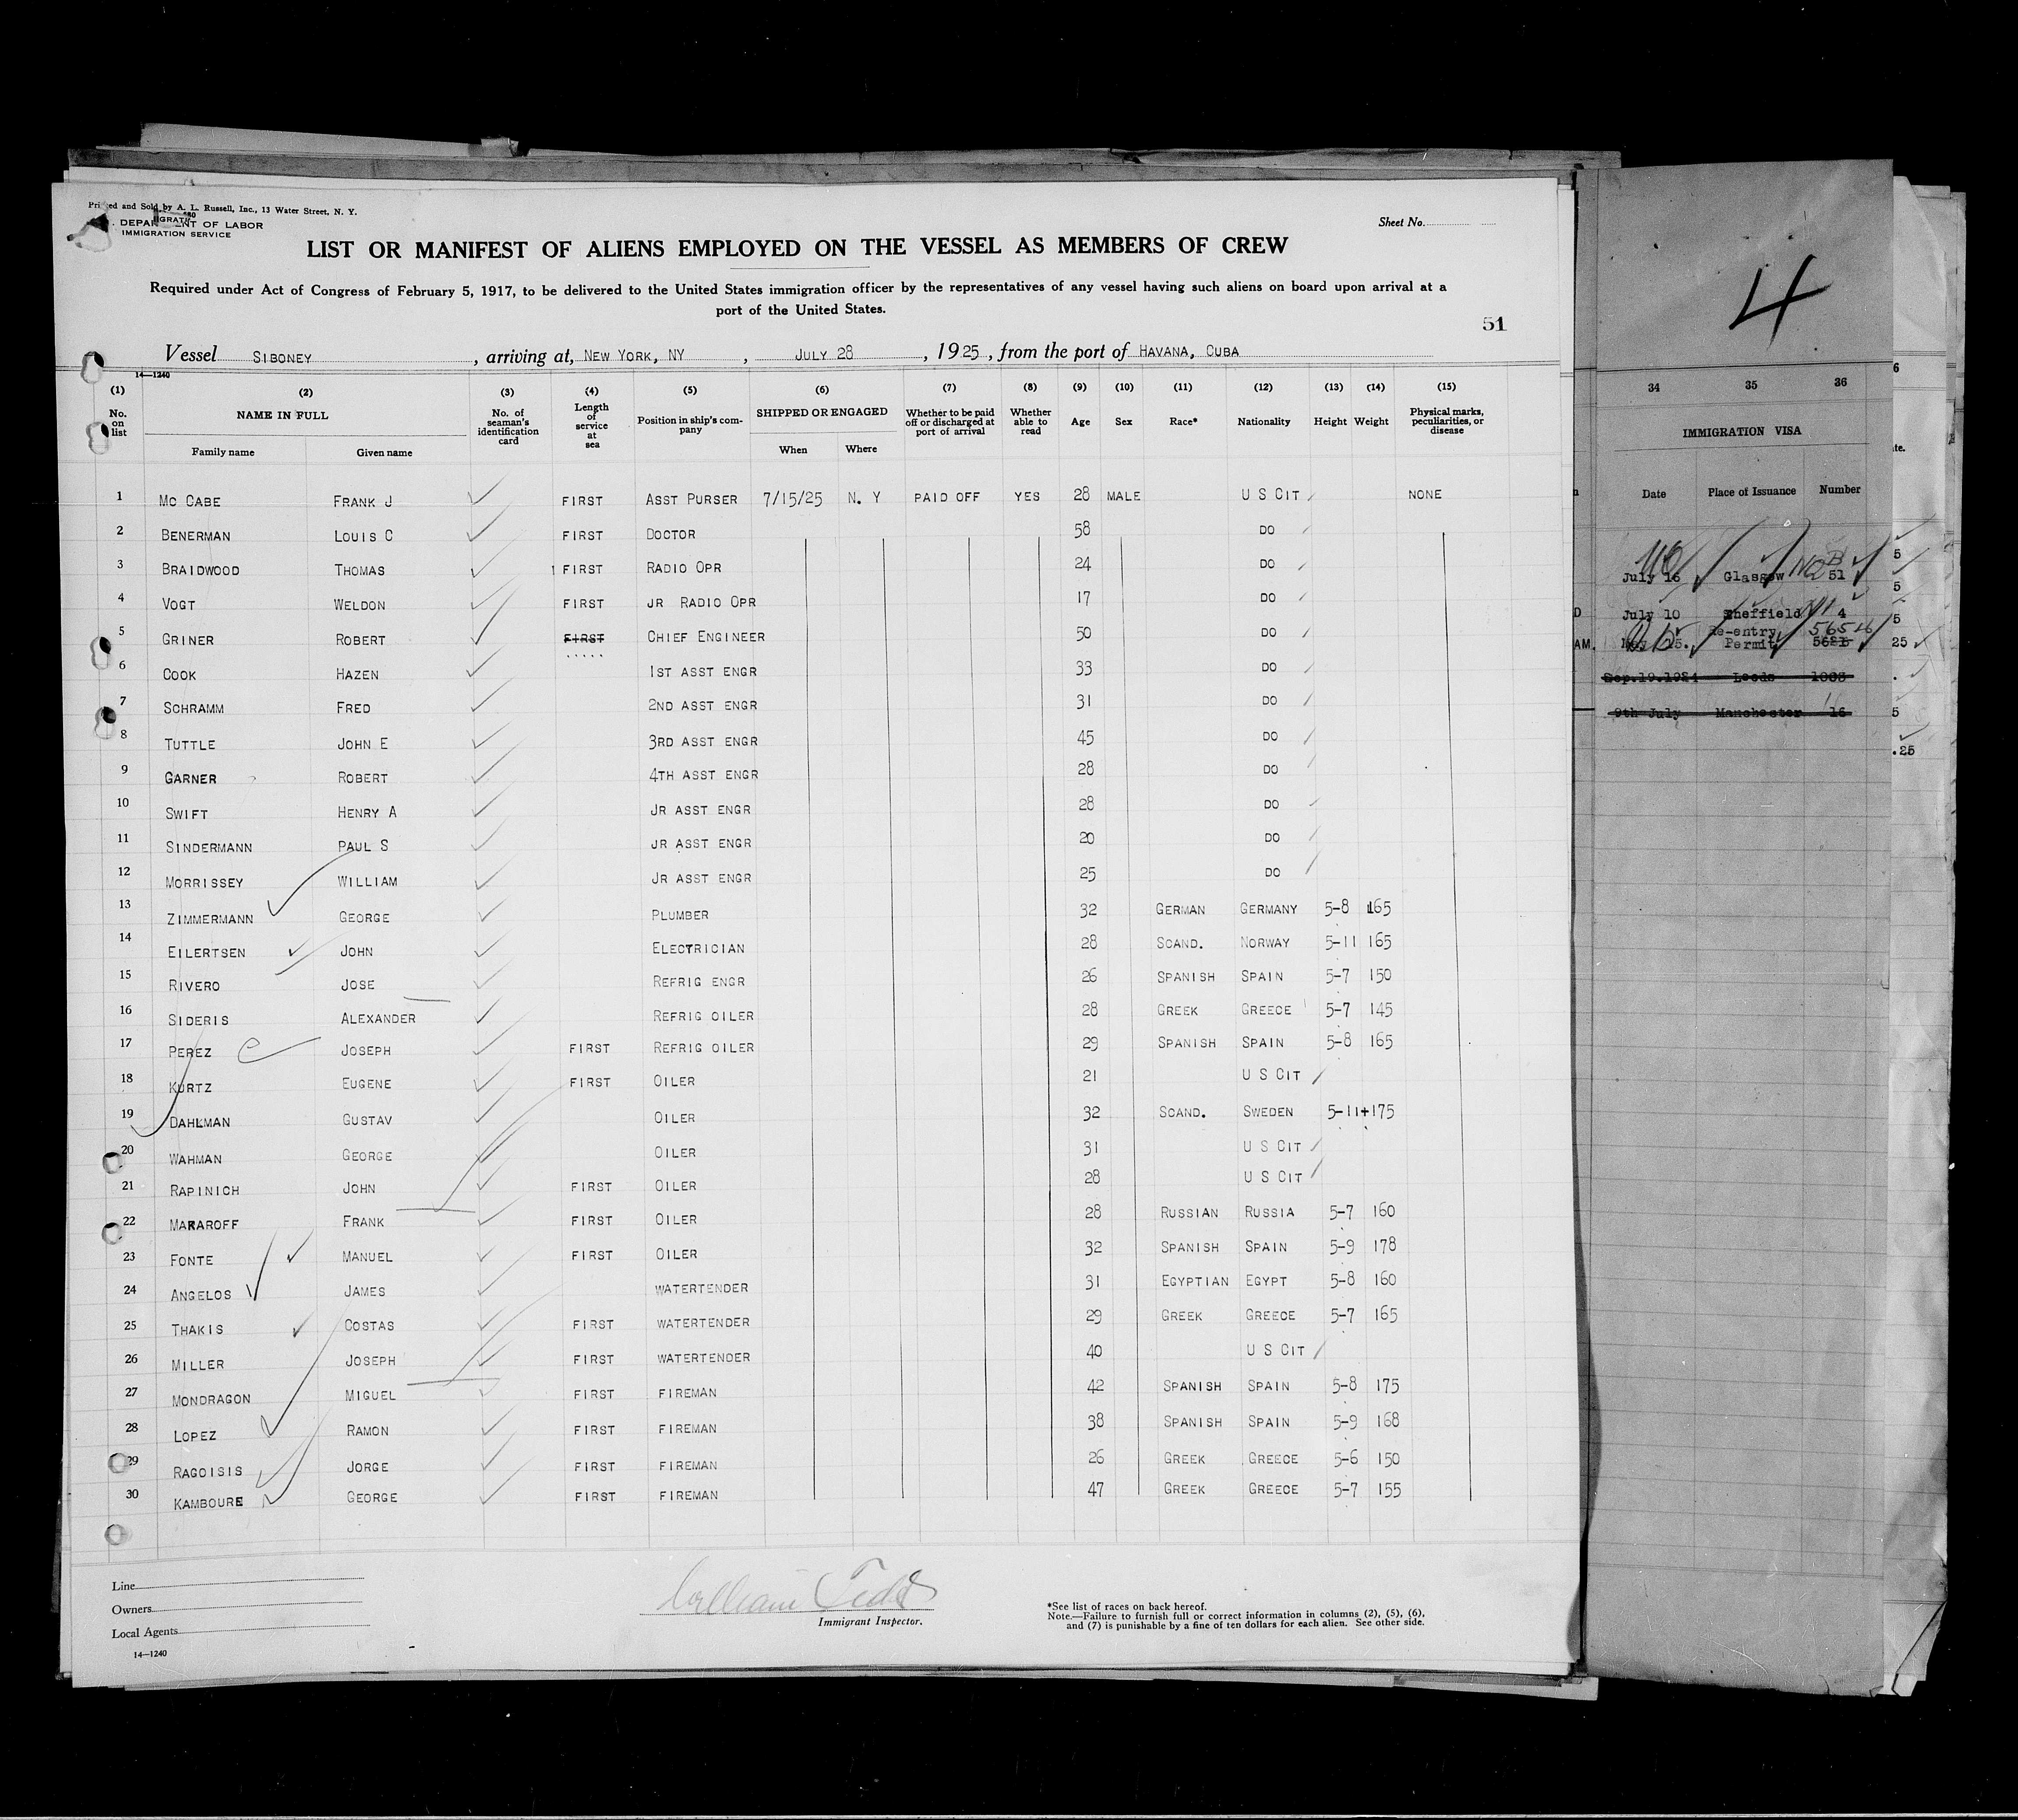 Printed and Sold by A. L. Russell, Inc., 13 Water Street, N. Y.
DEPARTMENT OF LABOR
IMMIGRATION SERVICE
Sheet No.
LIST OR MANIFEST OF ALIENS EMPLOYED ON THE VESSEL AS MEMBERS OF CREW
Required under Act of Congress of February 5, 1917, to be delivered to the United States immigration officer by the representatives of any vessel having such aliens on board upon arrival at a
port of the United States.
51
Vessel SIBONEY, arriving at, NEW YORK, NY, JULY 28, 1925, from the port of HAVANA, CUBA
14—1240
(1) (2) (3) (4) (5) (6) (7) (8) (9) (10) (11) (12) (13) (14) (15)
No. on list NAME IN FULL No. of seaman's identification card Length of service at sea Position in ship's company SHIPPED OR ENGAGED Whether to be paid off or discharged at port of arrival Whether able to read Age Sex Race* Nationality Height Weight Physical marks, peculiarities, or disease
Family name Given name When Where
1 MC CABE FRANK J FIRST ASST PURSER 7/15/25 N. Y PAID OFF YES 28 MALE U S CIT NONE
2 BENERMAN LOUIS C FIRST DOCTOR 58 DO
3 BRAIDWOOD THOMAS FIRST RADIO OPR 24 DO
4 VOGT WELDON FIRST JR RADIO OPR 17 DO
5 GRINER ROBERT FIRST CHIEF ENGINEER 50 DO
6 COOK HAZEN 1ST ASST ENGR 33 DO
7 SCHRAMM FRED 2ND ASST ENGR 31 DO
8 TUTTLE JOHN E 3RD ASST ENGR 45 DO
9 GARNER ROBERT 4TH ASST ENGR 28 DO
10 SWIFT HENRY A JR ASST ENGR 28 DO
11 SINDERMANN PAUL S JR ASST ENGR 20 DO
12 MORRISSEY WILLIAM JR ASST ENGR 25 DO
13 ZIMMERMANN GEORGE PLUMBER 32 GERMAN GERMANY 5-8 165
14 EILERTSEN JOHN ELECTRICIAN 28 SCAND. NORWAY 5-11 165
15 RIVERO JOSE REFRIG ENGR 26 SPANISH SPAIN 5-7 150
16 SIDERIS ALEXANDER REFRIG OILER 28 GREEK GREECE 5-7 145
17 PEREZ JOSEPH FIRST REFRIG OILER 29 SPANISH SPAIN 5-8 165
18 KURTZ EUGENE FIRST OILER 21 U S CIT
19 DAHLMAN GUSTAV OILER 32 SCAND. SWEDEN 5-11 175
20 WAHMAN GEORGE OILER 31 U S CIT
21 RAPINICH JOHN FIRST OILER 28 U S CIT
22 MAKAROFF FRANK FIRST OILER 28 RUSSIAN RUSSIA 5-7 160
23 FONTE MANUEL FIRST OILER 32 SPANISH SPAIN 5-9 178
24 ANGELOS JAMES WATERTENDER 31 EGYPTIAN EGYPT 5-8 160
25 THAKIS COSTAS FIRST WATERTENDER 29 GREEK GREECE 5-7 165
26 MILLER JOSEPH FIRST WATERTENDER 40 U S CIT
27 MONDRAGON MIGUEL FIRST FIREMAN 42 SPANISH SPAIN 5-8 175
28 LOPEZ RAMON FIRST FIREMAN 38 SPANISH SPAIN 5-9 168
29 RAGOISIS JORGE FIRST FIREMAN 26 GREEK GREECE 5-6 150
30 KAMBOURE GEORGE FIRST FIREMAN 47 GREEK GREECE 5-7 155
Line
Owners
Local Agents
14—1240
William Tedd
Immigrant Inspector.
*See list of races on back hereof.
Note.—Failure to furnish full or correct information in columns (2), (5), (6),
and (7) is punishable by a fine of ten dollars for each alien. See other side.
4
34 35 36
IMMIGRATION VISA
Date Place of Issuance Number
July 16 Glasgow 51
July 10 Sheffield 4
Re-entry 56546
May 15. Permit
Sep.19.1924 Leeds 1003
9th July Manchester 16